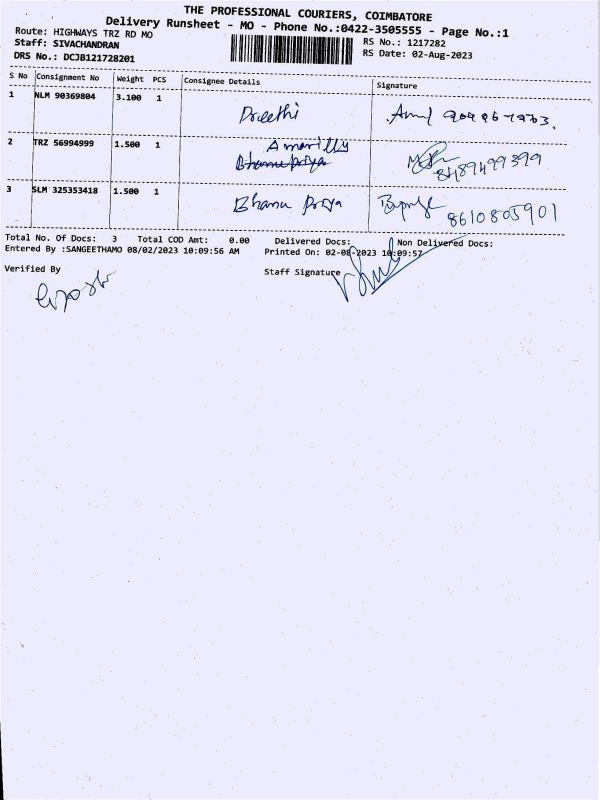 THE PROFESSIONAL COURIERS, COIMBATORE
Delivery Runsheet - MO - Phone No.:0422-3505555 - Page No.:1
Route: HIGHWAYS TRZ RD MO RS No.: 1217282
Staff: SIVACHANDRAN RS Date: 02-Aug-2023
DRS No.: DCJB121728201
S No Consignment No Weight PCS Consignee Details Signature
1 NLM 90369804 3.100 1 Preethi
Amarilly
2 TRZ 56994999 1.500 1 Bhanupriya 8489499399
3 SLM 325353418 1.500 1 Bhanu Priya 8610805901
Total No. Of Docs: 3 Total COD Amt: 0.00 Delivered Docs: Non Delivered Docs:
Entered By :SANGEETHAMO 08/02/2023 10:09:56 AM Printed On: 02-08-2023 10:09:57
Verified By Staff Signature